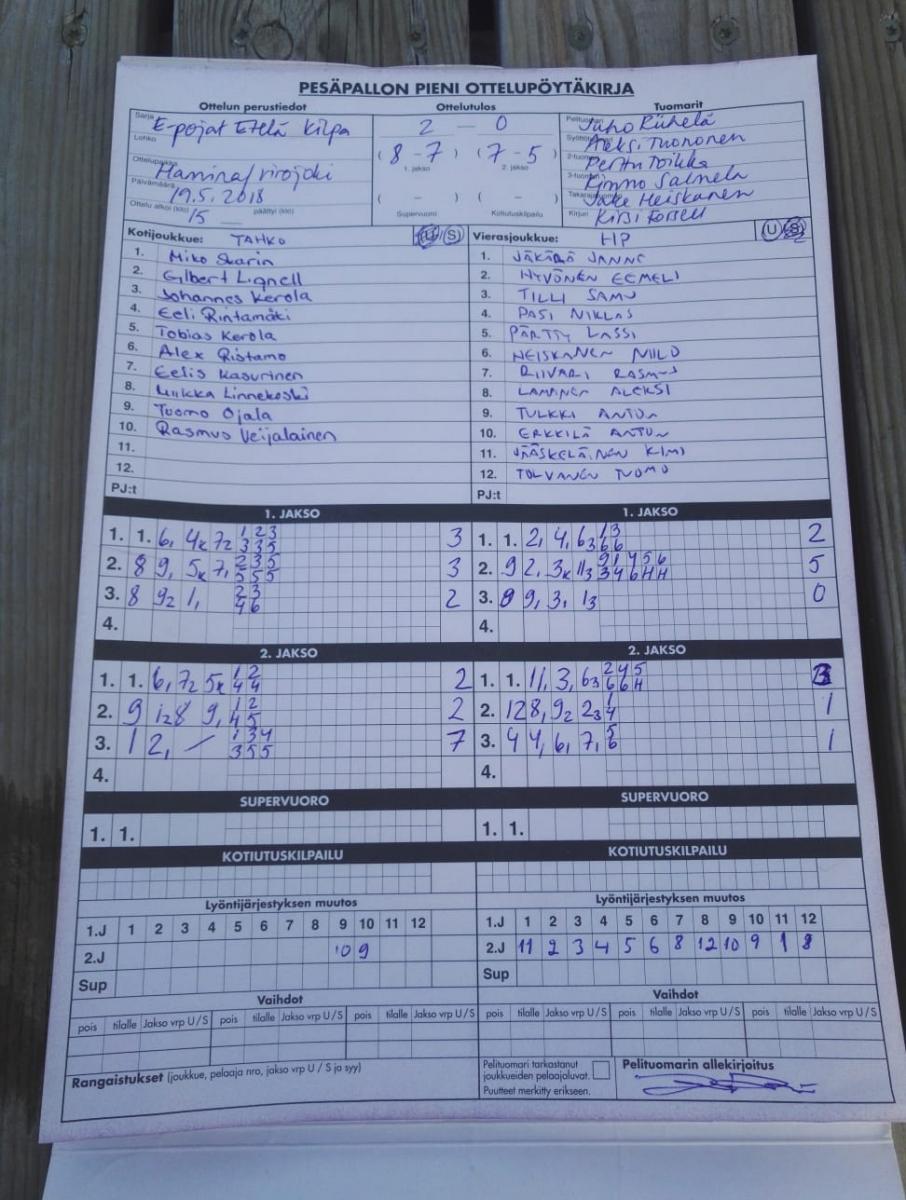 PESÄPALLON PIENI OTTELUPÖYTÄKIRJA
Ottelun perustiedot Ottelutulos Tuomarit
Sarja E-pojat Etelä Kilpa
Lohko
Ottelupaikka Hamina/
Päivämäärä 19.5.2018
Ottelu alkoi (klo) 15 päättyi (klo)
2 - 0
(8-7) (7-5)
1. jakso 2. jakso
( - ) ( - )
Supervuoro Kotiutuskilpailu
Pelituomari Juho
Aleksi Tuononen
2-tuomari Perttu Toikka
3-tuomari Kimmo Salmela
Heiskanen
Kirjuri Kirsi Forsell
Kotijoukkue: TAHKO U S
1. Miko Skarin
2. Gilbert Lignell
3. Johannes Kerola
4. Eeli Rintamäki
5. Tobias Kerola
6. Alex Ristamo
7. Eelis Kasurinen
8. Miikka Linnekoski
9. Tuomo Ojala
10. Rasmus Veijalainen
11.
12.
PJ:t
Vierasjoukkue: HP U S
1. JÄKÄRÄ JANNE
2. HYVÖNEN EEMELI
3. TILLI SAMU
4. PASI NIKLAS
5. PÄRTTY LASSI
6. HEISKANEN NIILO
7. RIIVARI RASMUS
8. LAMPINEN ALEKSI
9. TULKKI ANTON
10. ERKKILÄ ANTON
11. JÄÄSKELÄINEN KIMI
12. TOLVANEN TUOMO
PJ:t
1. JAKSO
1. 1. 6, 4x 72 1 2 3 3
3 3 5
2. 8 9, 5x 7, 2 3 5 3
5 5 5
3. 8 92 1, 2 3 2
4 6
4.
1. JAKSO
1. 1. 2, 4, 63 1 3 2
6 6
2. 9 2, 3x 113 9 1 4 5 6 5
3 4 6 H H
3. 8 9, 3, 13 0
4.
2. JAKSO
1. 1. 6, 72 5x 1 2 2
4 4
2. 9 128 9, 1 2 2
4 5
3. 1 2, - 1 3 4 7
3 5 5
4.
2. JAKSO
1. 1. 11, 3, 63 2 4 5 3
6 6 H
2. 12 8, 92 23 1 1
4
3. 4 4, 6, 7, 5 1
6
4.
SUPERVUORO
1. 1.
SUPERVUORO
1. 1.
KOTIUTUSKILPAILU
KOTIUTUSKILPAILU
Lyöntijärjestyksen muutos
1.J 1 2 3 4 5 6 7 8 9 10 11 12
2.J 10 9
Sup
Lyöntijärjestyksen muutos
1.J 1 2 3 4 5 6 7 8 9 10 11 12
2.J 11 2 3 4 5 6 8 12 10 9 1 8
Sup
Vaihdot
pois tilalle Jakso vrp U/S pois tilalle Jakso vrp U/S pois tilalle Jakso vrp U/S
Vaihdot
pois tilalle Jakso vrp U/S pois tilalle Jakso vrp U/S pois tilalle Jakso vrp U/S
Rangaistukset (joukkue, pelaaja nro, jakso vrp U / S ja syy)
Pelituomari tarkastanut
joukkueiden pelaajaluvat.
Puutteet merkitty erikseen.
Pelituomarin allekirjoitus